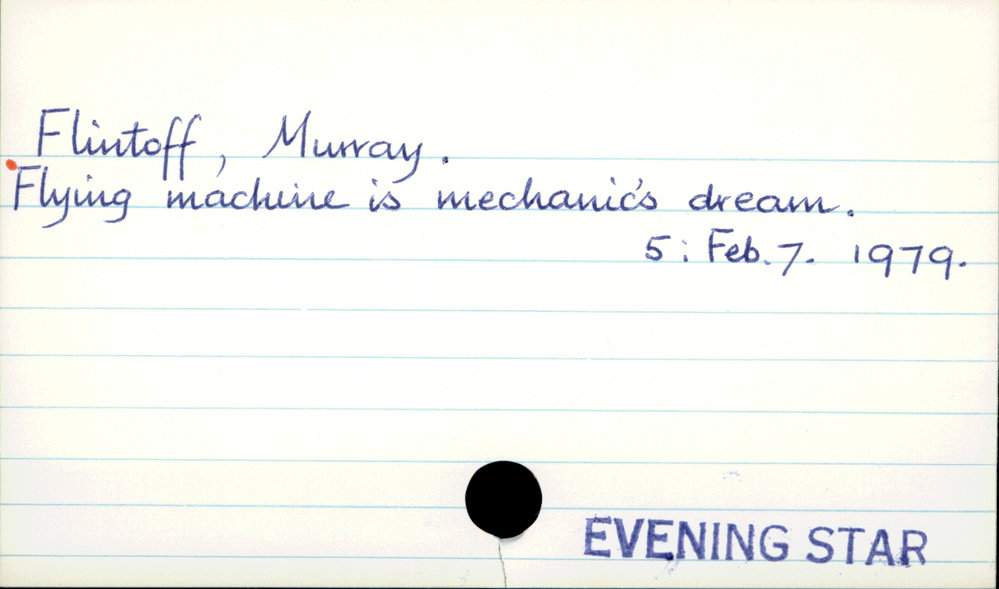 Flintoff, Murray.
Flying machine is mechanic's dream.
5: Feb. 7. 1979.
EVENING STAR